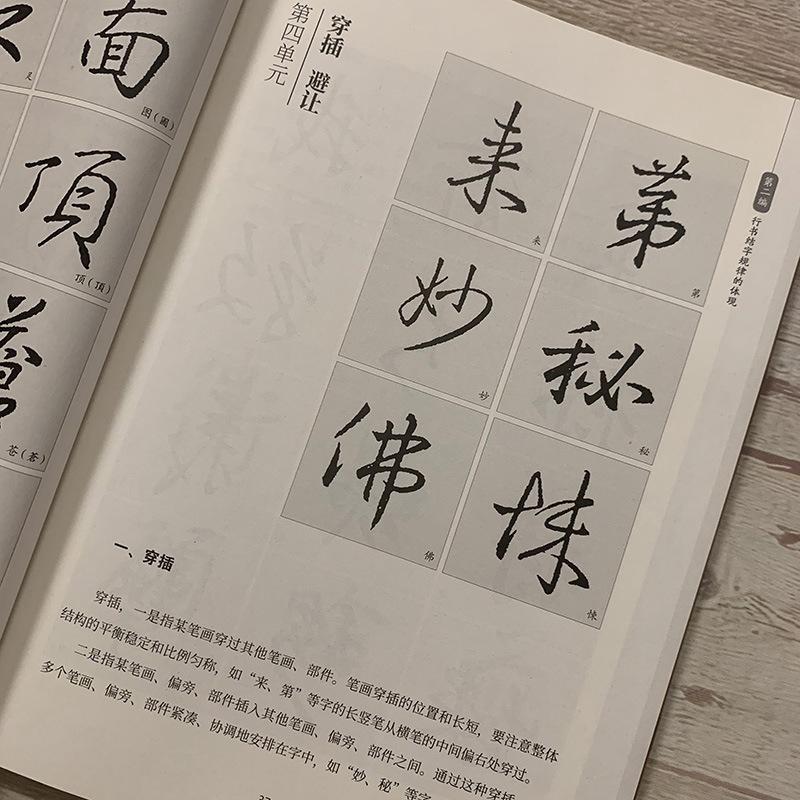 又
圖
图(圖)
頂
顶(頂)
蒼
苍(蒼)
第四单元
穿插 避让
第二编
行书结字规律的体现
来
来
第
第
妙
妙
秘
秘
佛
佛
悚
悚
一、穿插
穿插，一是指某笔画穿过其他笔画、部件。笔画穿插的位置和长短，要注意整体
结构的平衡稳定和比例匀称，如“来、第”等字的长竖笔从横笔的中间偏右处穿过。
二是指某笔画、偏旁、部件插入其他笔画、偏旁、部件之间。通过这种穿插
多个笔画、偏旁、部件紧凑、协调地安排在字中，如“妙、秘”等字